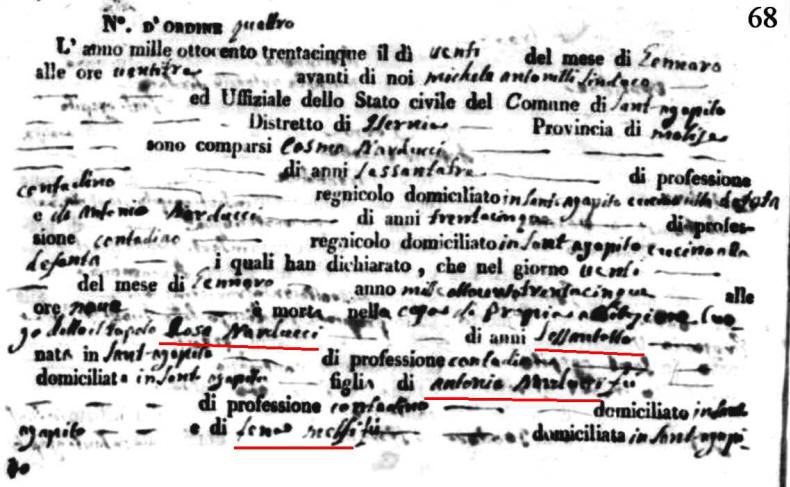 68
Nº. D'ORDINE quattro
L'anno mille ottocento trentacinque il dì venti del mese di Gennaro
alle ore ventitre avanti di noi Michele Antonilli Sindaco
ed Uffiziale dello Stato civile del Comune di Sant-agapito
Distretto di Isernia Provincia di Molise
sono comparsi Cosmo Narducci
di anni sessantatre di professione
contadino regnicolo domiciliato in Sant agapito vicino alla
e di Antonio Narducci di anni trentacinque di profes-
sione contadino regnicolo domiciliato in Sant agapito vicino alla
defonta i quali han dichiarato, che nel giorno venti
del mese di Gennaro anno mille ottocento trentacinque alle
ore nove è morta nella casa di propria abitazione luo
go detto il Rosa Narducci di anni sessantotto
nata in Sant-agapito di professione contadina
domiciliata in Sant agapito figlia di Antonio Narducci fu
di professione contadino domiciliato in Sant
agapito e di fu domiciliata in Sant-agapi
to